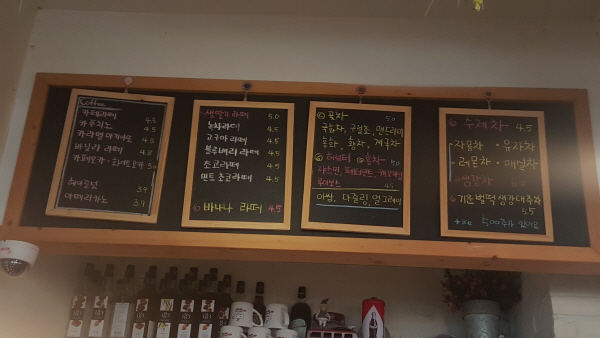 Coffee
카페라떼 4.5
카푸치노 4.5
카라멜 마끼아또 4.5
바닐라 라떼 4.8
카페모카 · 화이트모카 5.0
에스프레소 3.9
아메리카노 3.9
생딸기 라떼 5.0
녹차라떼 4.5
고구마 라떼 4.5
블루베리 라떼 4.5
초코라떼 4.5
민트 초코라떼 4.5
바나나 라떼 4.5
꽃차 5.0
국화차, 구절초, 맨드라미
동화, 홍차, 계국차
허브티 5.0
자스민, 페퍼민트, 캐모마일
루이보스 4.5
아쌈, 다즐링, 얼그레이
수제차 4.5
자몽차 · 유자차
레몬차 · 매실차
생강차
기운벌떡 생강대추차
4.5
+ice 500추가